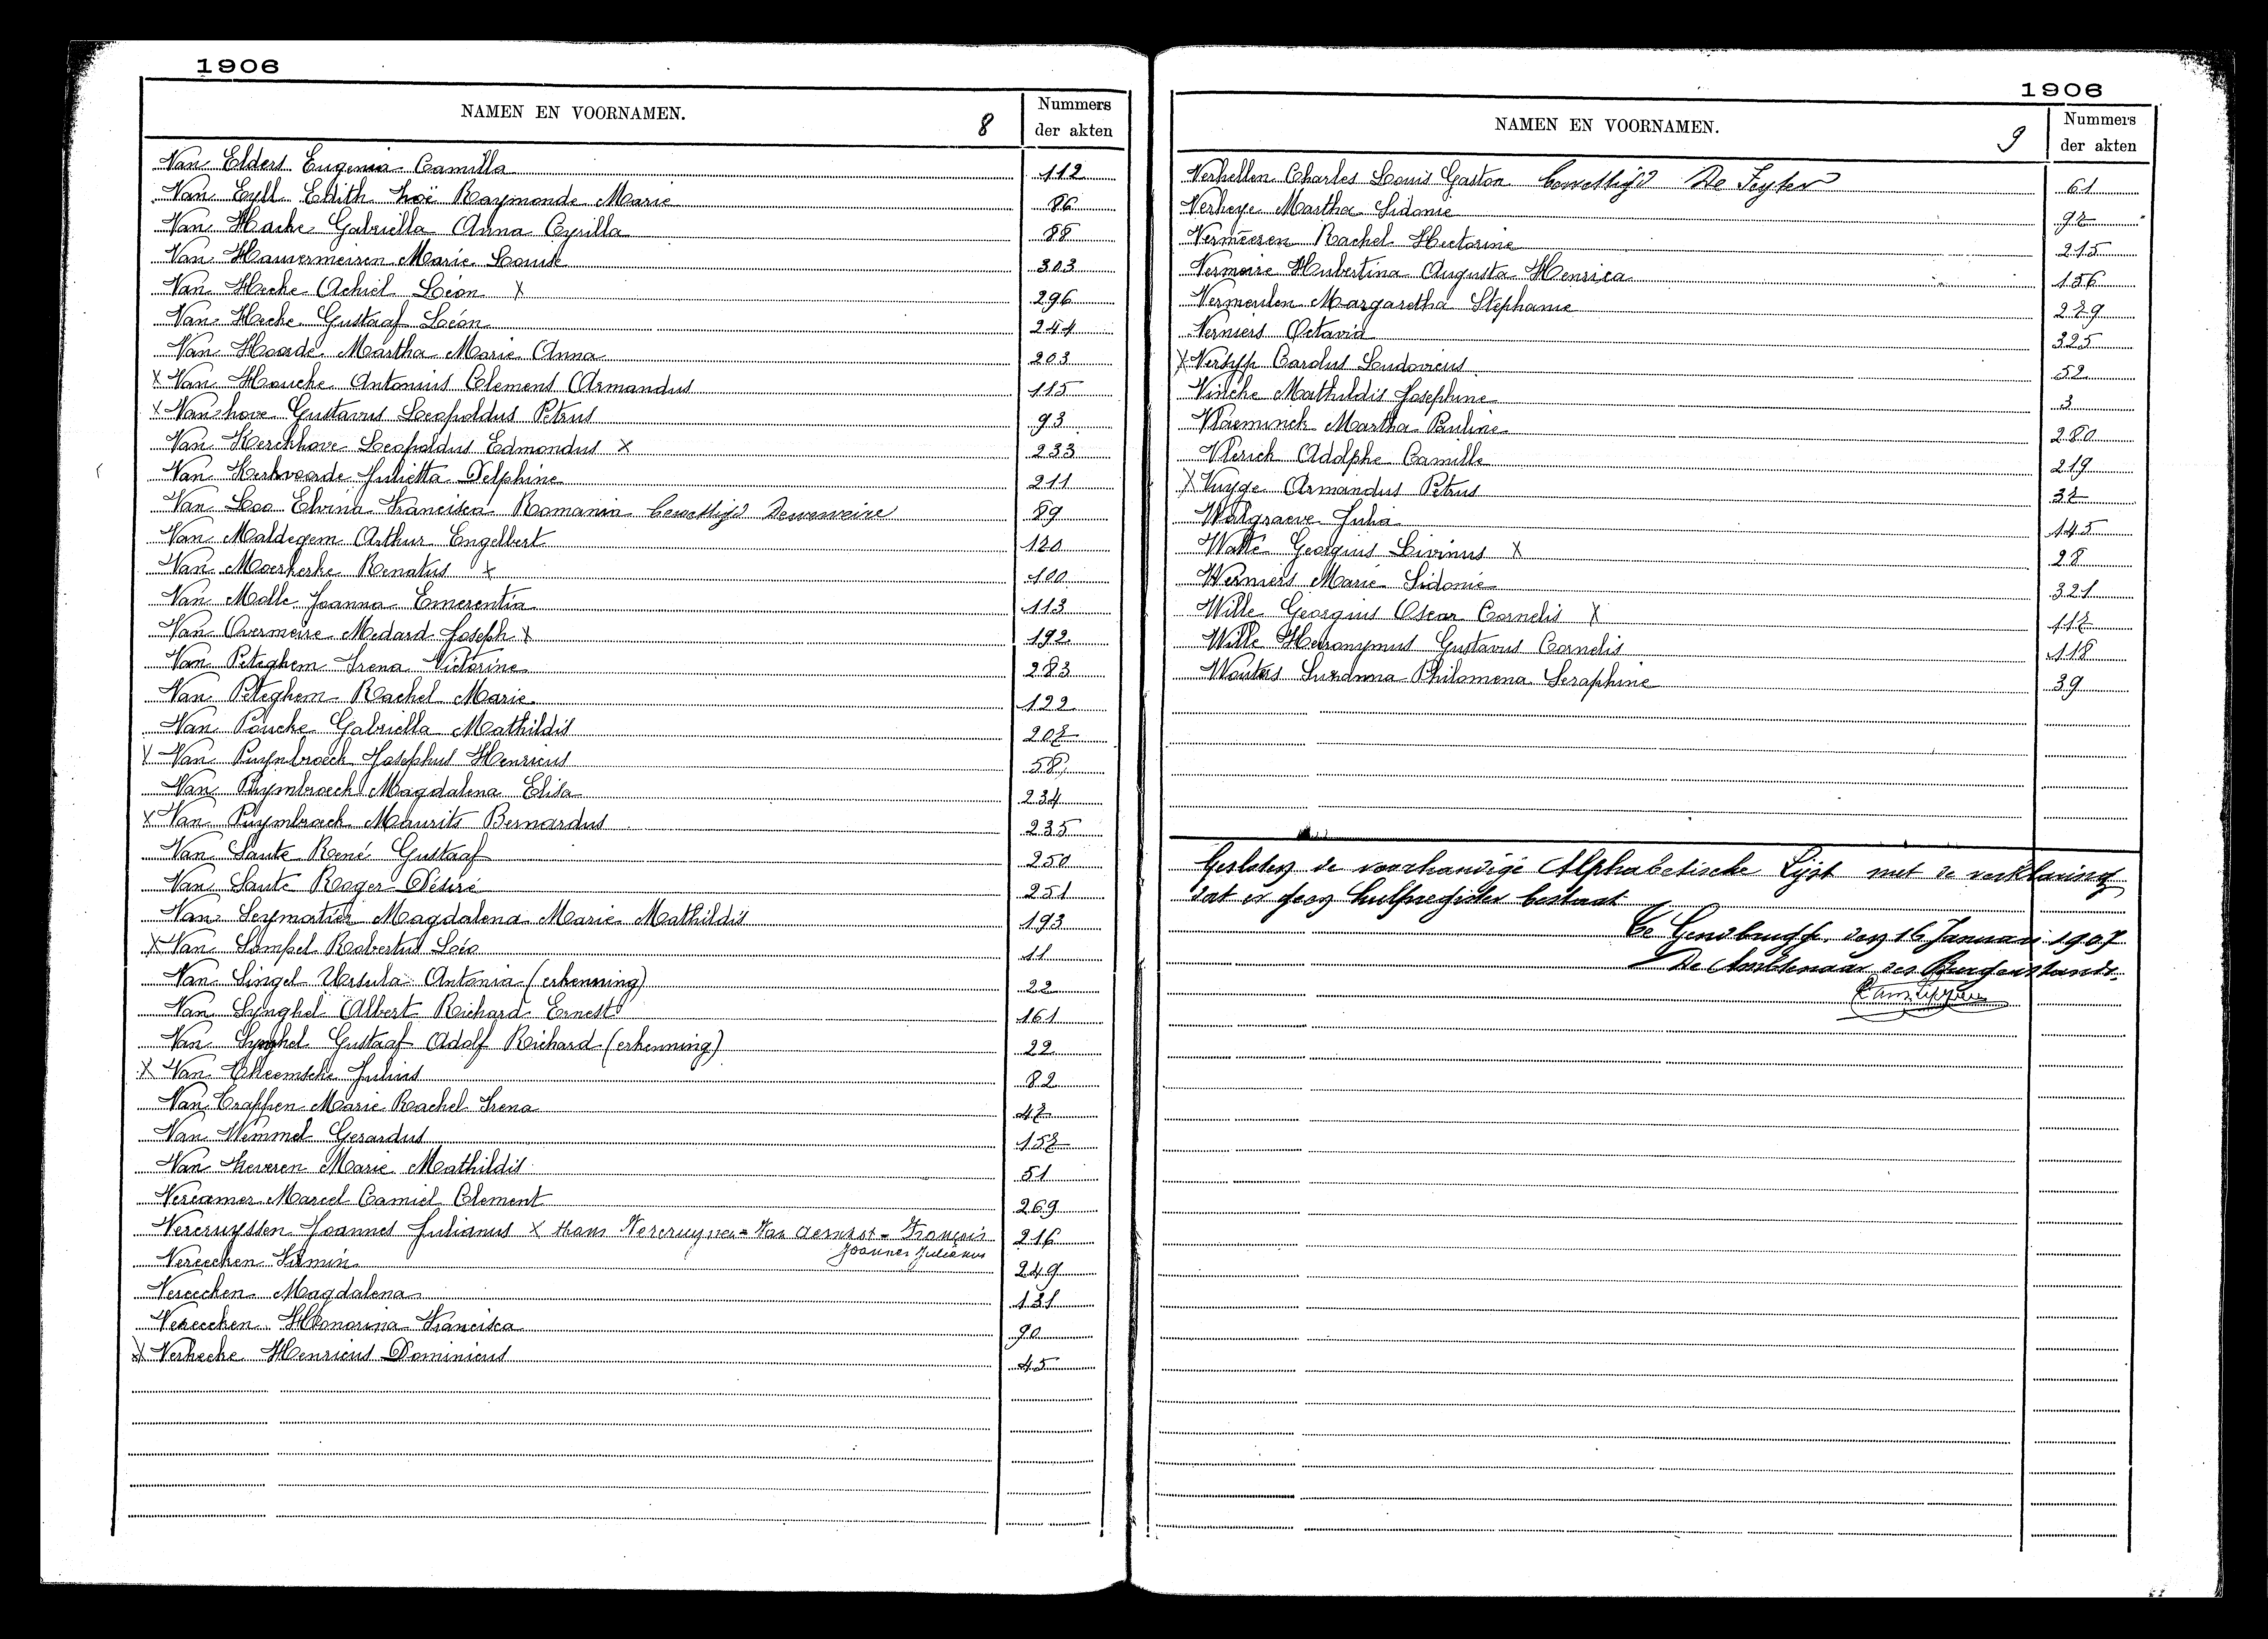 1906
NAMEN EN VOORNAMEN. 8 Nummers der akten
Van Elders Eugenia Camilla 112
Van Eyll Edith Zoë Raymonde Marie 86
Van Hacke Gabriella Anna Cyrilla 88
Van Hauwermeiren Marie Louise 303
Van Hecke Achiel Léon X 296
Van Hecke Gustaaf Léon 244
Van Hoorde Martha Marie Anna 203
X Van Houcke Antonius Clemens Armandus 115
X Vanhove Gustavus Leopoldus Petrus 93
Van Kerckhove Leopoldus Edmondus X 233
Van Kerkvoorde Julietta Delphine 211
Van Loo Elvina Francisca Romania bewettigd Deweweire 89
Van Maldegem Arthur Engelbert 120
Van Moerkerke Renatus X 100
Van Molle Joanna Emerentia 113
Van Overmeire Medard Joseph X 192
Van Peteghem Irena Victorine 283
Van Peteghem Rachel Marie 122
Van Poucke Gabriella Mathildis 207
X Van Puymbroeck Josephus Henricus 58
Van Puymbroeck Magdalena Elisa 234
X Van Puymbroeck Maurits Bernardus 235
Van Sante René Gustaaf 250
Van Sante Roger Désiré 251
Van Seymortier Magdalena Marie Mathildis 193
X Van Sompel Robertus Léo 11
Van Singel Ursula Antonia (erkenning) 22
Van Synghel Albert Richard Ernest 161
Van Synghel Gustaaf Adolf Richard (erkenning) 22
X Van Theemsche Julius 82
Van Trappen Marie Rachel Irena 47
Van Wemmel Gerardus 157
Van Zeveren Marie Mathildis 51
Vercamer Marcel Camiel Clement 269
Vercruyssen Joannes Julianus X thans Vercruyssen - Van Aernest - François 216
Joannes Julianus
Vereecken Firmin 249
Vereecken Magdalena 131
Vereecken Honorina Francisca 90
X Verhecke Henricus Dominicus 45
1906
NAMEN EN VOORNAMEN. 9 Nummers der akten
Verhellen Charles Louis Gaston bewettigd De Feyter 61
Verheye Martha Sidonie 97
Vermeeren Rachel Hectorine 215
Vermeire Hubertina Augusta Henrica 156
Vermeulen Margaretha Stephanie 229
Verniers Octavia 325
X Versyp Carolus Ludovicus 52
Vincke Mathildis Josephine 3
Vlaeminck Martha Pauline 280
Vlerick Adolphe Camille 219
X Vuyge Armandus Petrus 37
Walgraeve Julia 145
Watté Georgius Livinus X 28
Werniers Marie Sidonie 321
Wille Georgius Oscar Cornelis X 117
Wille Heironymus Gustavus Cornelis 118
Wouters Suzanna Philomena Seraphine 39
Gesloten de voorhandige Alphabetische Lijst met de verklaring
dat er geen hulpregister bestaat
Te Gendbrugge, den 16 Januari 1907
De Ambtenaar des Burgerstands.